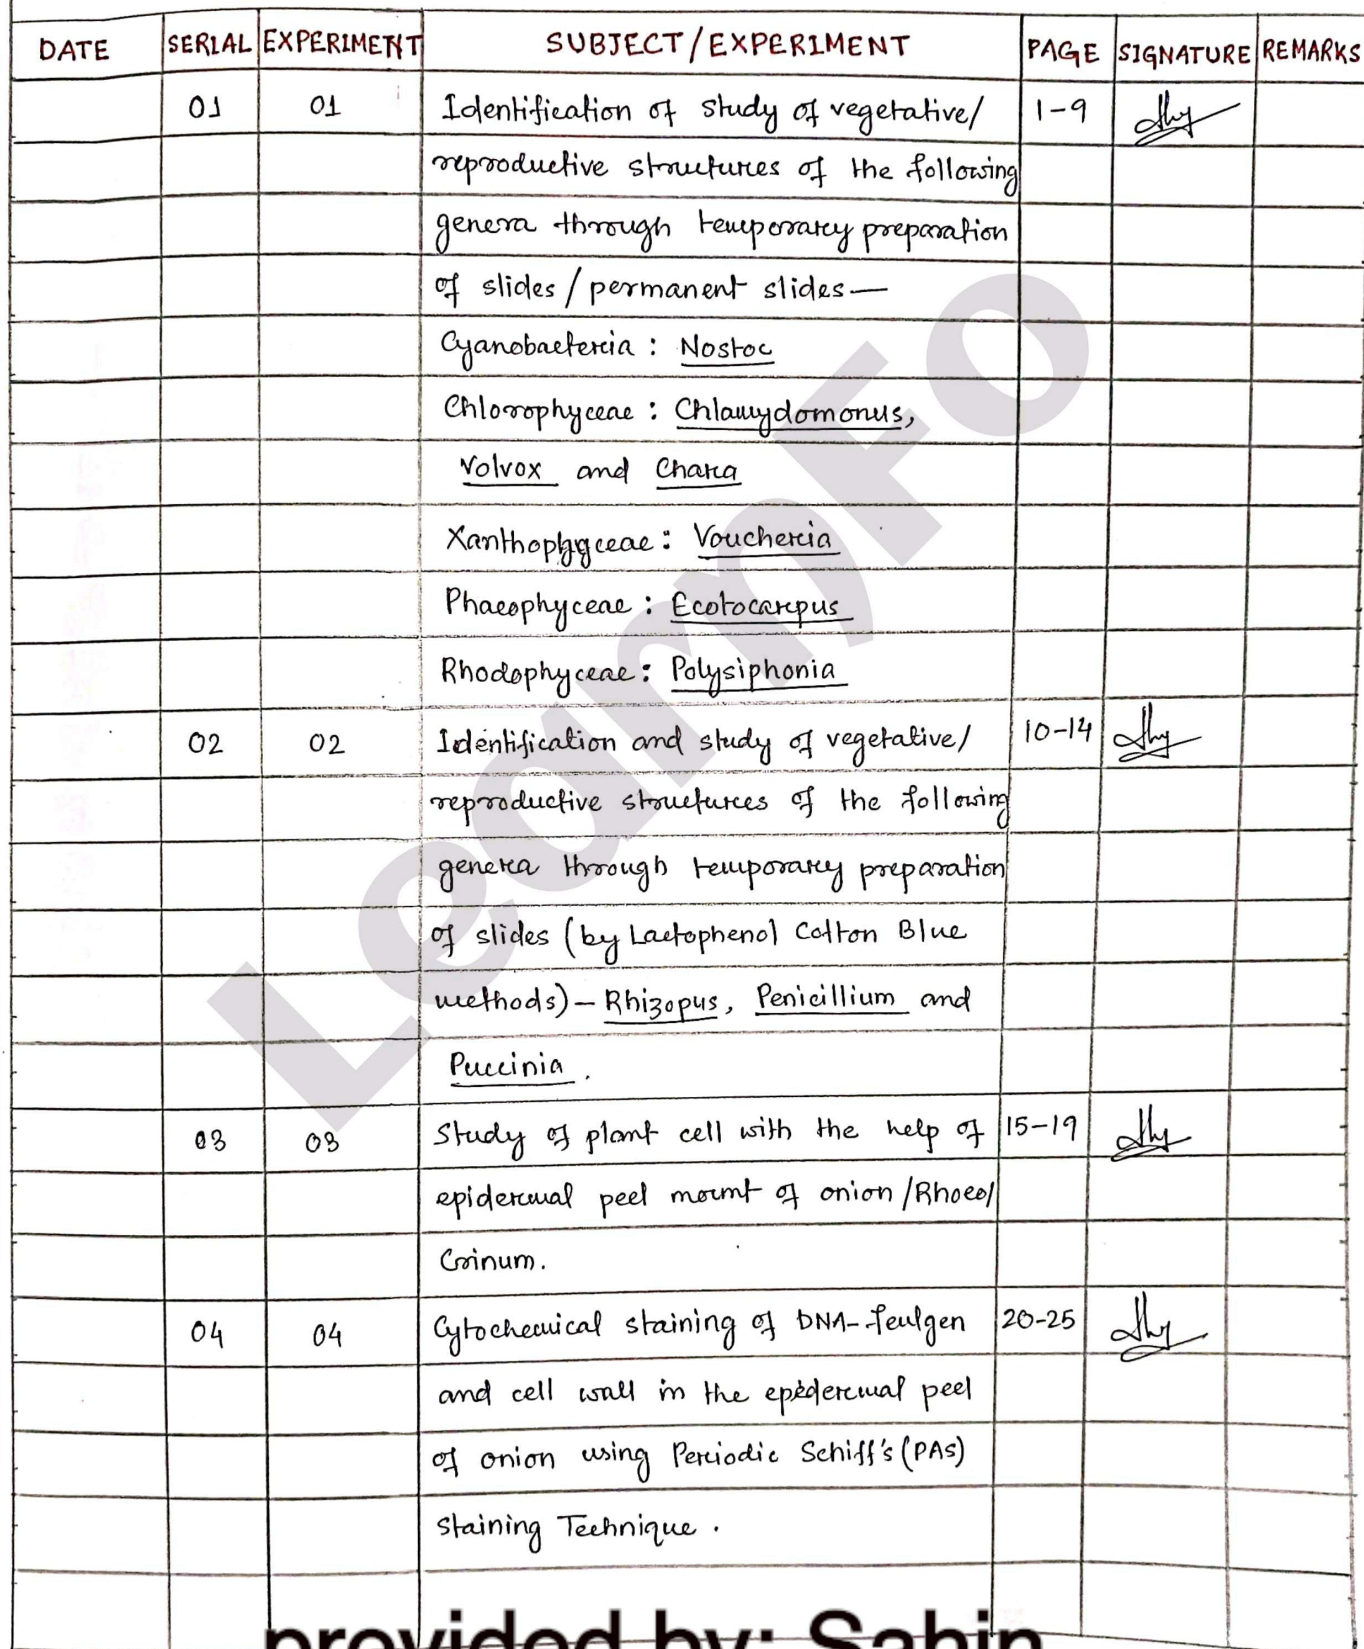 DATE SERIAL EXPERIMENT SUBJECT/EXPERIMENT PAGE SIGNATURE REMARKS
01 01 Identification of study of vegetative/ 1-9
reproductive structures of the following
genera through temporary preparation
of slides/permanent slides—
Cyanobacteria : Nostoc
Chlorophyceae : Chlamydomonus,
Volvox and Chara
Xanthophyceae : Voucheria
Phaeophyceae : Ecotocarpus
Rhodophyceae : Polysiphonia
02 02 Identification and study of vegetative/ 10-14
reproductive structures of the following
genera through temporary preparation
of slides (by Lactophenol Cotton Blue
methods) – Rhizopus, Penicillium and
Puccinia.
03 03 Study of plant cell with the help of 15-19
epidermal peel mount of onion/Rhoeo/
Crinum.
04 04 Cytochemical staining of DNA-feulgen 20-25
and cell wall in the epidermal peel
of onion using Periodic Schiff's (PAS)
staining Technique.
LearnFo
provided by: Sahin